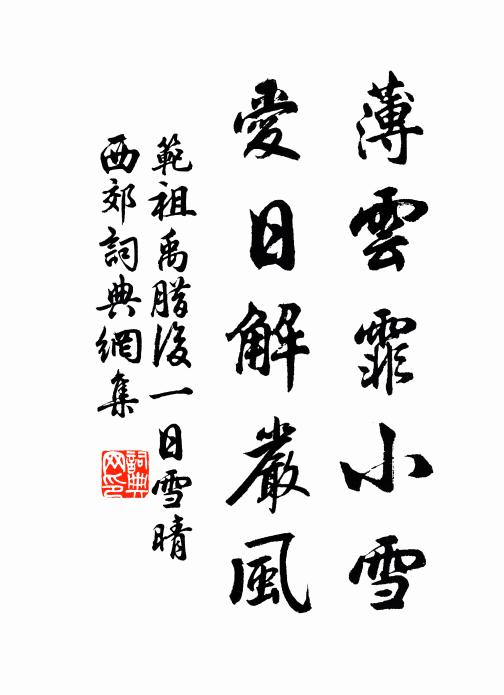 薄雲霏小雪
愛日解嚴風
範祖禹腊後一日雪晴
西郊詞典網集
詞典网印